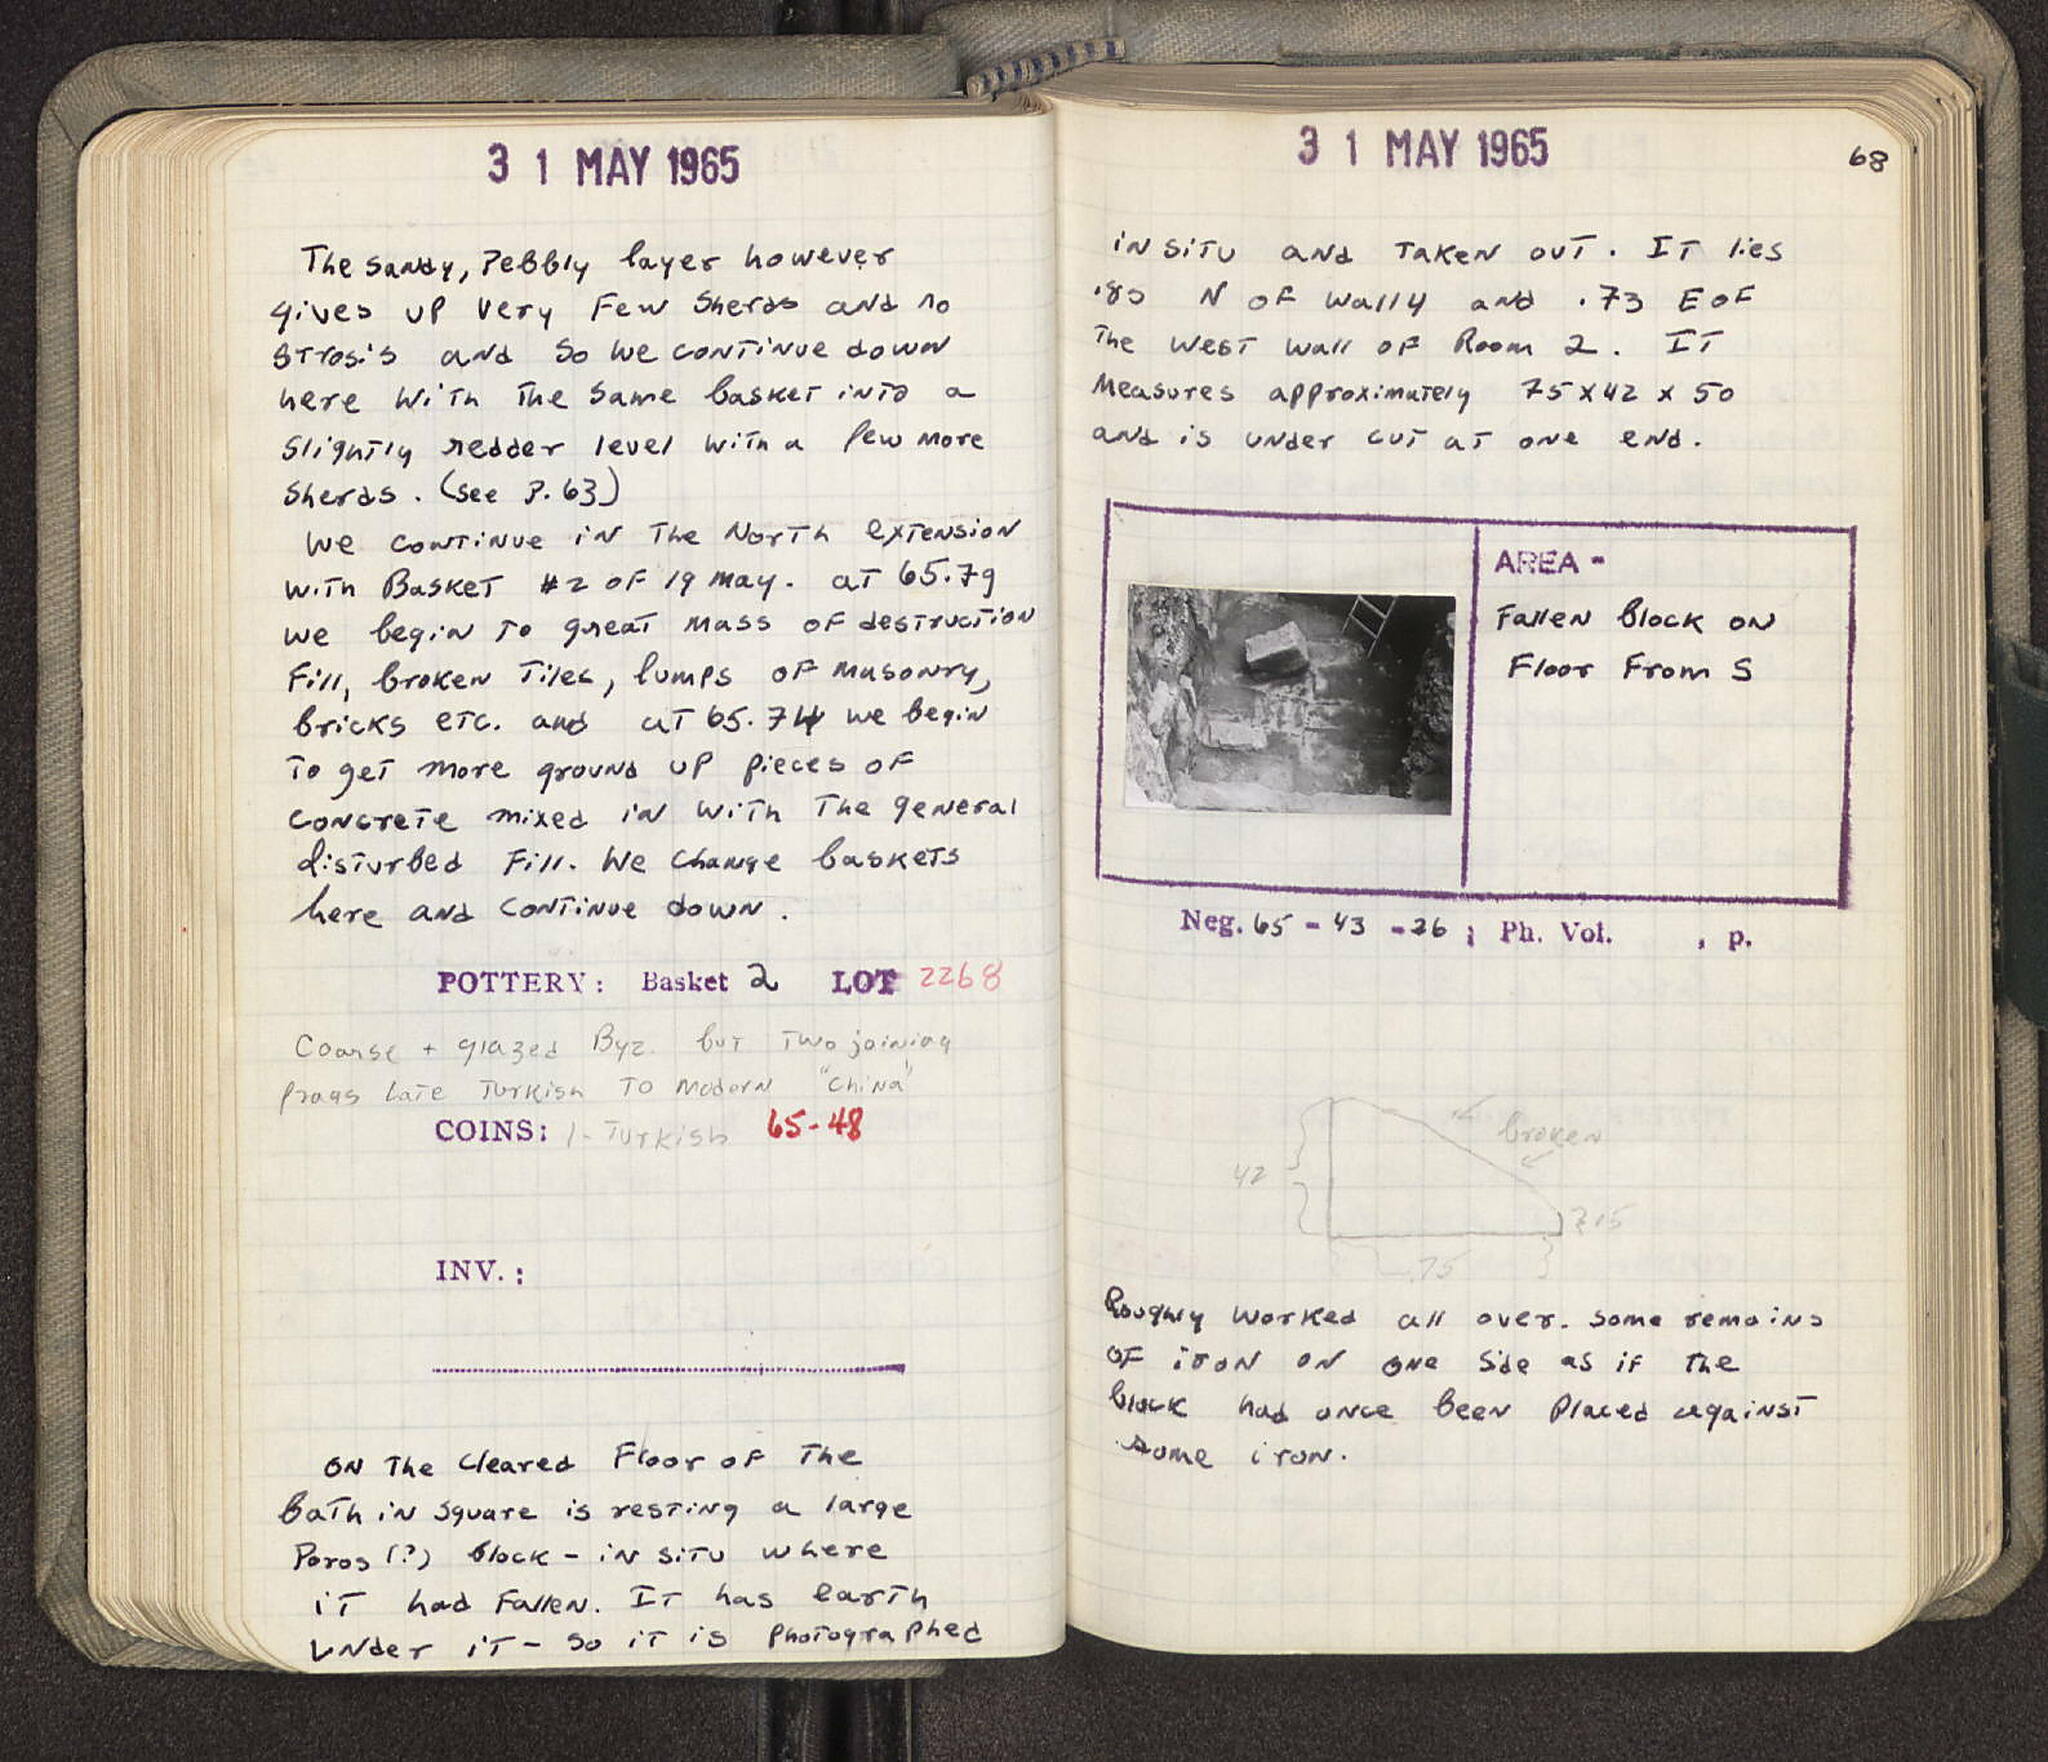 31 MAY 1965
The sandy, Pebbly layer however
gives up very Few Sherds and no
strosis and so we continue down
here with the same basket into a
slightly redder level with a few more
sherds. (see P. 63)
We continue in The North extension
with Basket #2 of 19 May. at 65.79
we begin to great mass of destruction
Fill, broken Tiles, lumps of masonry,
bricks etc. and at 65.74 we begin
to get more ground up pieces of
concrete mixed in with the general
disturbed Fill. We change baskets
here and continue down.
POTTERY: Basket 2 LOT 2268
Coarse + glazed Byz. but two joining
frags Late Turkish to modern "China"
COINS: 1-Turkish 65-48
INV.:
On The cleared Floor of The
bath in square is resting a large
Poros (?) block - in situ where
it had fallen. It has earth
under it - so it is photographed
31 MAY 1965
68
in situ and taken out. It lies
N of Wall 4 and .73 E of
The West Wall of Room 2. It
measures approximately 75 x 42 x 50
and is under cut at one end.
AREA -
Fallen block on
Floor From S
Neg. 65 - 43 - 26 ; Ph. Vol. , p.
broken
42
15
.75
Roughly worked all over. some remains
of iron on one side as if the
block had once been placed against
some iron.